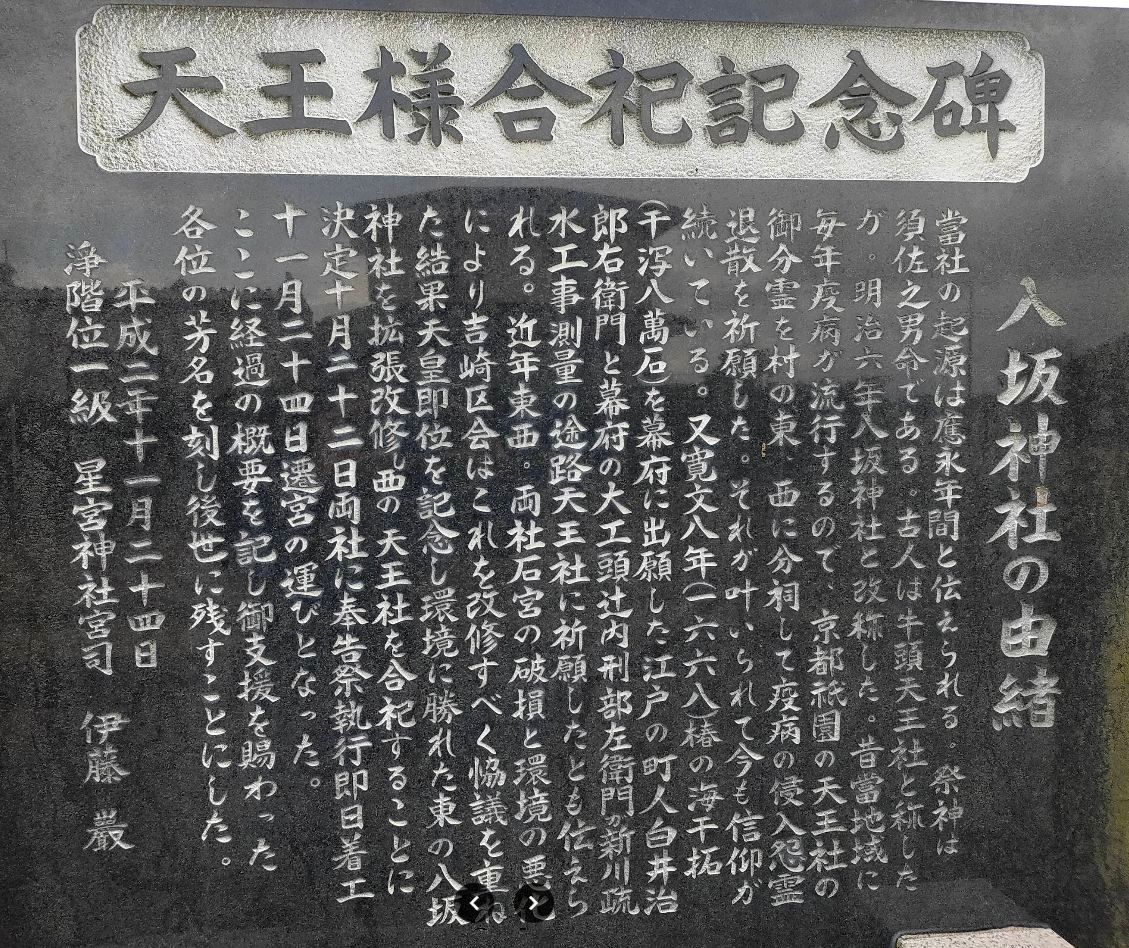 天王様合祀記念碑
八坂神社の由緒
當社の起源は應永年間と伝えられる。祭神は
須佐之男命である。古人は牛頭天王社と称した
が。明治六年八坂神社と改称した。昔當地域に
毎年疫病が流行するので、京都祇園の天王社の
御分霊を村の東、西に分祠して疫病の侵入怨霊
退散を祈願した。それが叶いられて今も信仰が
続いている。又寛文八年(一六六八)椿の海干拓
(干泻八萬石)を幕府に出願した江戸の町人白井治
郎右衛門と幕府の大工頭辻内刑部左衛門が新川疏
水工事測量の途路天王社に祈願したとも伝えら
れる。近年東西。両社石宮の破損と環境の悪化
により吉崎区会はこれを改修すべく恊議を重ね
た結果天皇即位を記念し環境に勝れた東の八坂
神社を拡張改修し西の天王社を合祀することに
決定十月二十二日両社に奉告祭執行即日着工
十一月二十四日遷宮の運びとなった。
ここに経過の概要を記し御支援を賜わった
各位の芳名を刻し後世に残すことにした。
平成二年十一月二十四日
浄階位一級 星宮神社宮司 伊藤 巖